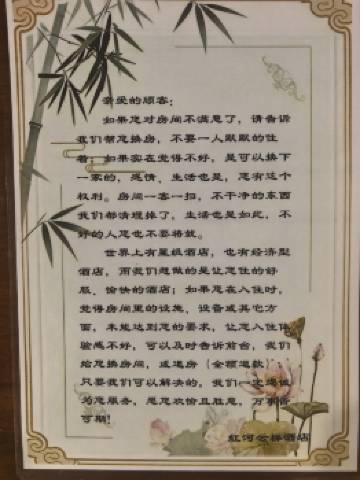 亲爱的顾客:
如果您对房间不满意了,请告诉
我们帮您换房,不要一人默默的住
着;如果实在觉得不好,是可以换下
一家的,感情、生活也是,您有这个
权利。房间一客一扫,不干净的东西
我们都清理掉了,生活也是如此,不
好的人您也不要将就。
世界上有星级酒店,也有经济型
酒店,而我们想做的是让您住的舒
服、愉快的酒店;如果您在入住时,
觉得房间里的设施、设备或其它方
面,未能达到您的要求,让您入住体
验感不好,可以及时告诉前台,我们
给您换房间,或退房(全额退款)
只要我们可以解决的,我们一定竭诚
为您服务,愿您欢愉且胜意,万事皆
可期!
红河公样酒店